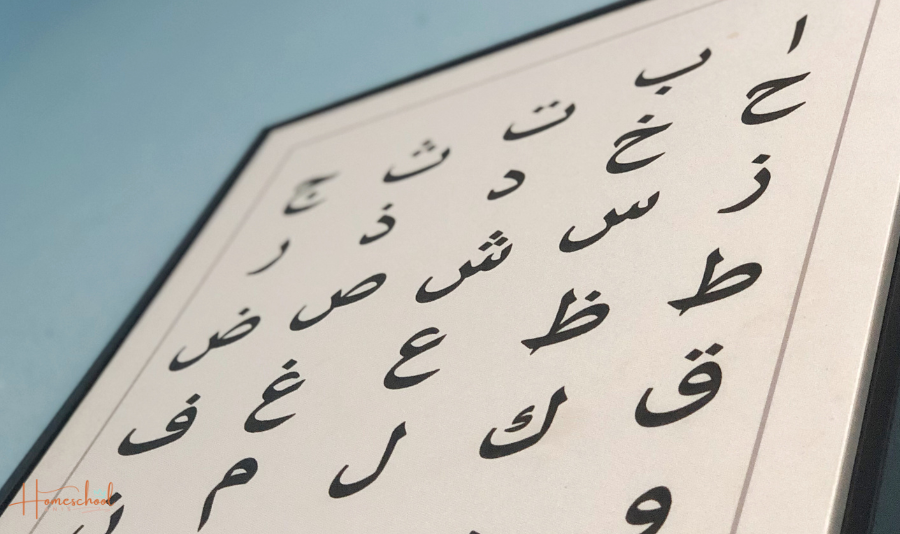 ا ب ت ث ج
ح خ د ذ ر
ز س ش ص ض
ط ظ ع غ ف
ق ك ل م ن
و
Homeschool